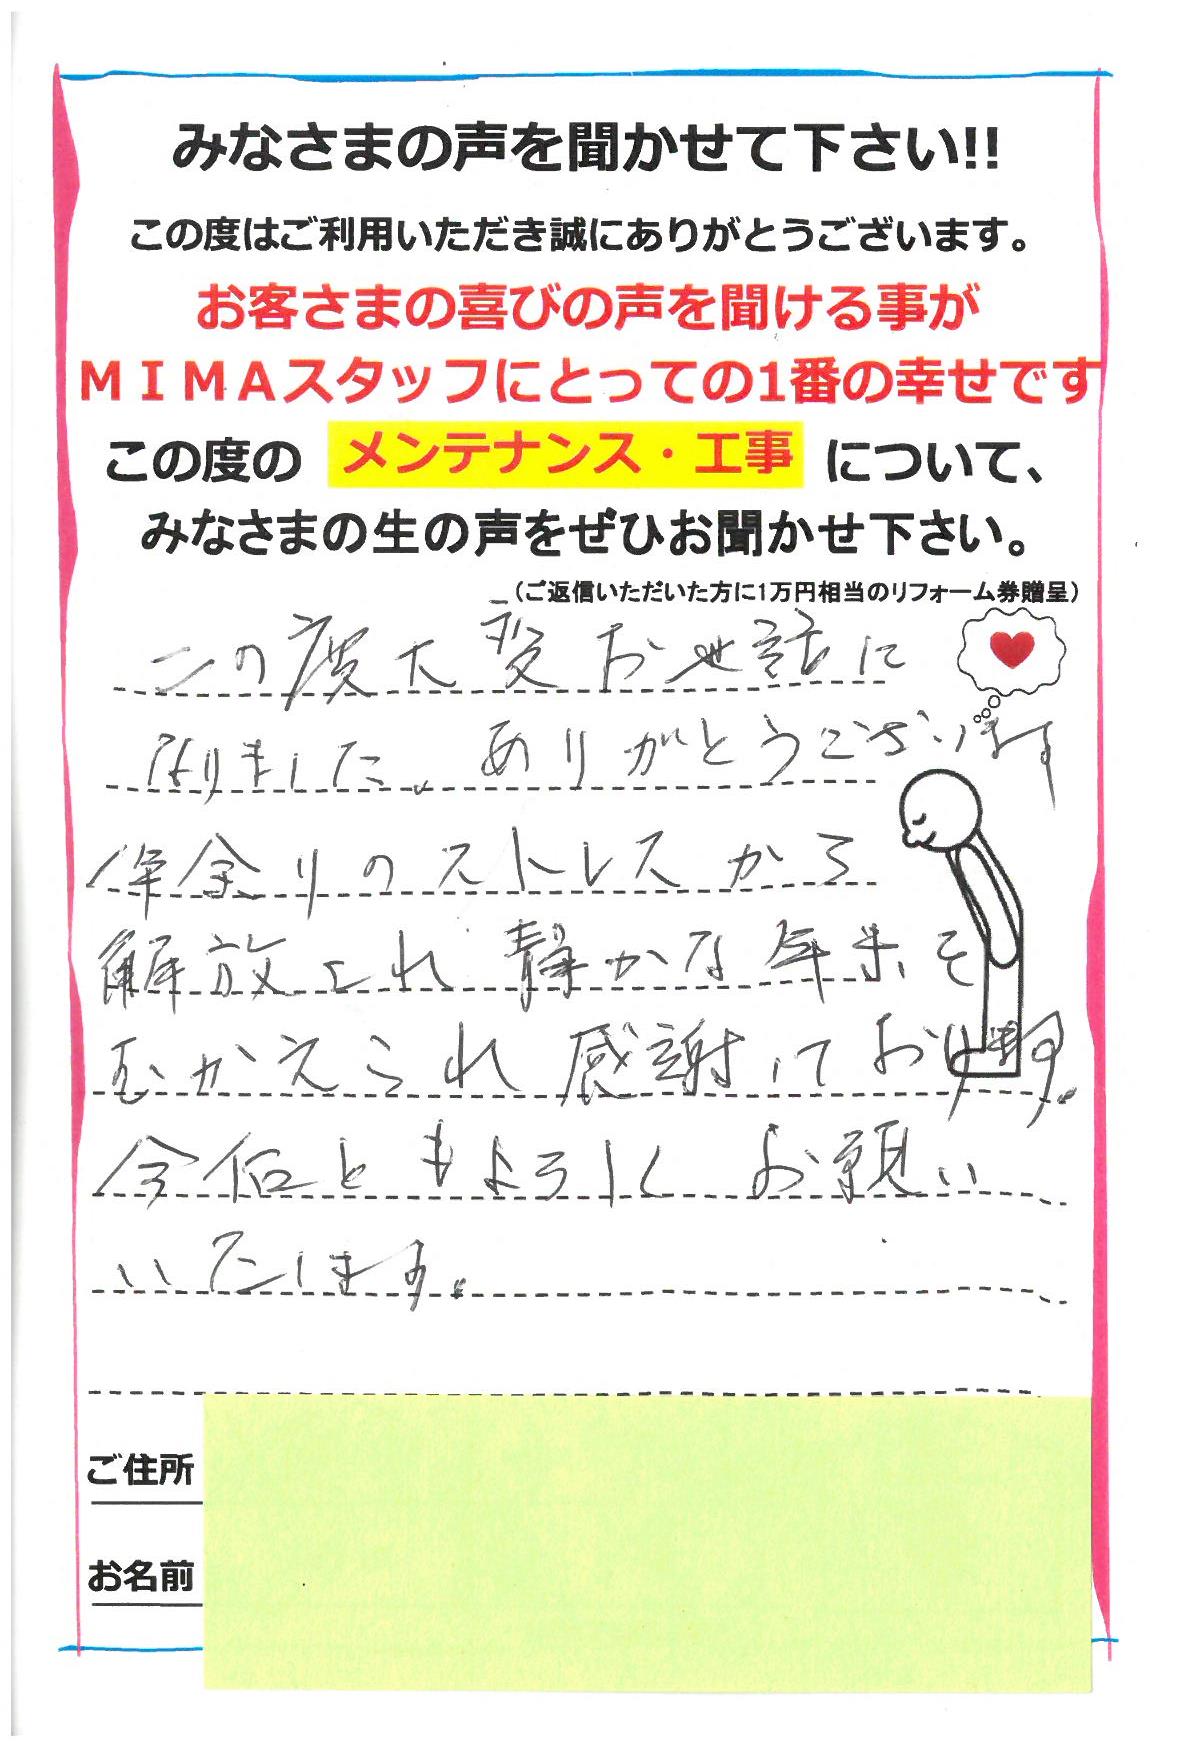 みなさまの声を聞かせて下さい!!
この度はご利用いただき誠にありがとうございます。
お客さまの喜びの声を聞ける事が
ＭＩＭＡスタッフにとっての1番の幸せです
この度の メンテナンス・工事 について、
みなさまの生の声をぜひお聞かせ下さい。
（ご返信いただいた方に1万円相当のリフォーム券贈呈）
この度大変お世話に
なりました。ありがとうございます
年余りのストレスから
解放され静かな年末を
むかえられ感謝しております。
今後ともよろしくお願い
いたします。
ご住所
お名前